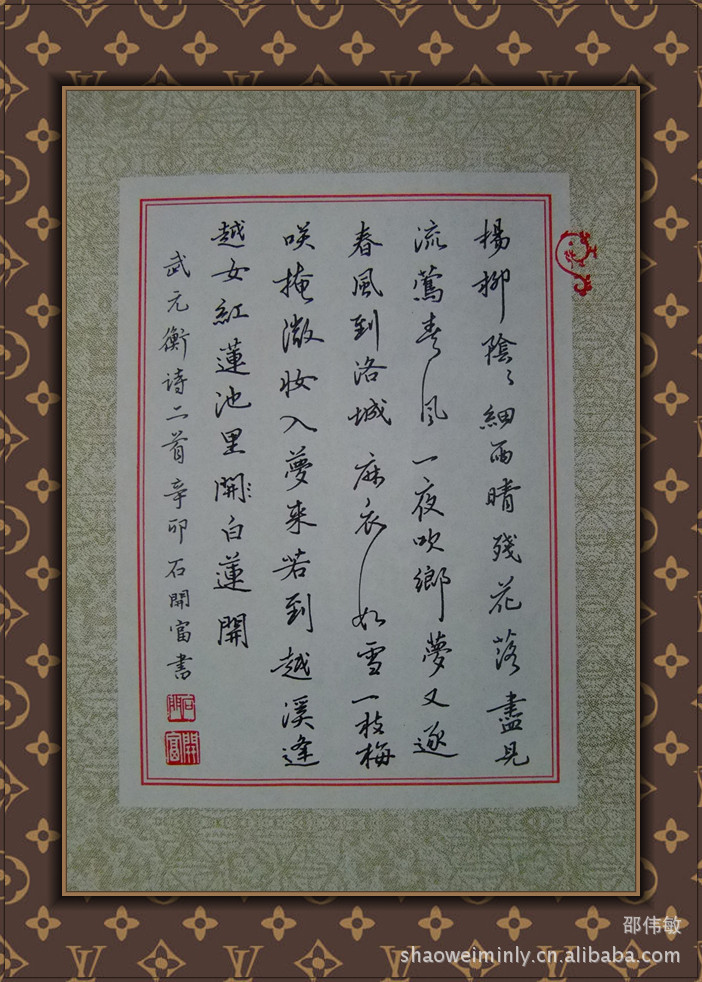 楊柳陰〻細雨晴殘花落盡見
流鶯春風一夜吹鄉夢又逐
春風到洛城麻衣如雪一枝梅
咲掩微妝入夢来若到越溪逢
越女紅蓮池里開白蓮開
武元衡诗二首辛卯石開富書
邵伟敏
shaoweiminly.cn.alibaba.com